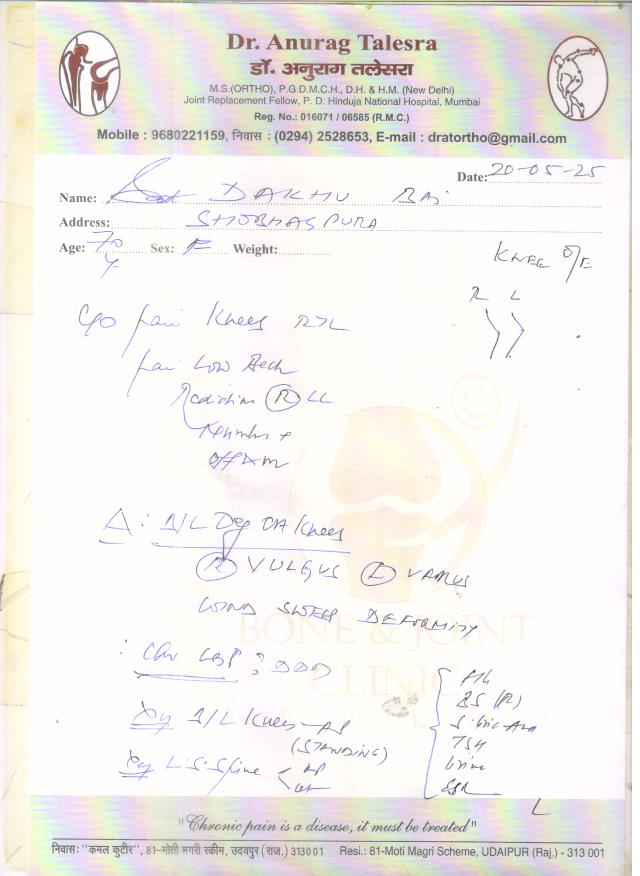 Dr. Anurag Talesra
डॉ. अनुराग तलेसरा
M.S.(ORTHO), P.G.D.M.C.H., D.H. & H.M. (New Delhi)
Joint Replacement Fellow, P. D. Hinduja National Hospital, Mumbai
Reg. No.: 016071 / 06585 (R.M.C.)
Mobile : 9680221159, निवास : (0294) 2528653, E-mail : dratortho@gmail.com
Date: 20-05-25
Name: DAKHU Bai
Address: SHOBHAGPURA
Age: 70 Y Sex: F Weight:
KNEE O/E
R L
C/o pain Knees R>L
pain Low Back
Radiation (R) LL
Numbness +
Δ: B/L Deg OA Knees
(R) VULGUS (L) VARUS
WIND SWEEP DEFORMITY
: Chr LBP ? DDD
Xy B/L Knees - AP
(STANDING)
Xy L.S. Spine < AP
Hb
BS (R)
S. Uric
TSH
Urine
BONE & JOINT
CLINIC
"Chronic pain is a disease, it must be treated"
निवास: "कमल कुटीर", 81-मोती मगरी स्कीम, उदयपुर (राज.) 313001 Resi.: 81-Moti Magri Scheme, UDAIPUR (Raj.) - 313 001